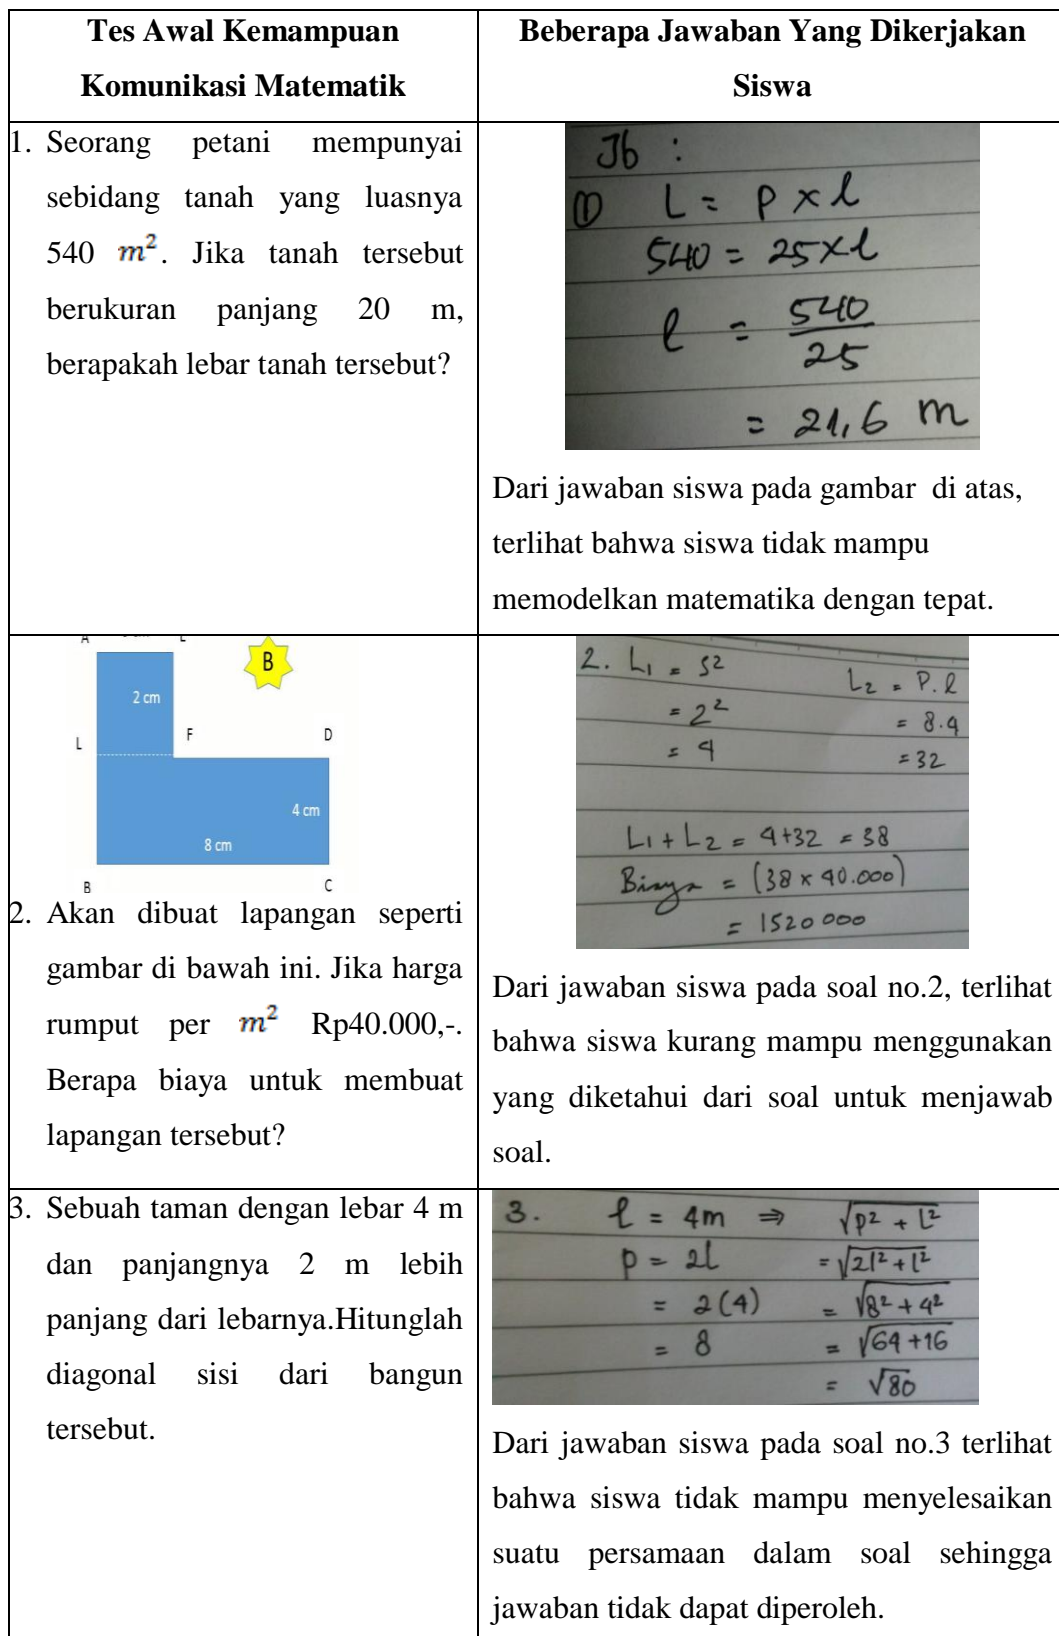 Tes Awal Kemampuan
Komunikasi Matematik
Beberapa Jawaban Yang Dikerjakan
Siswa
1. Seorang petani mempunyai
sebidang tanah yang luasnya
540 m². Jika tanah tersebut
berukuran panjang 20 m,
berapakah lebar tanah tersebut?
Jb :
① L = P x l
540 = 25 x l
l = 540/25
= 21,6 m
Dari jawaban siswa pada gambar di atas,
terlihat bahwa siswa tidak mampu
memodelkan matematika dengan tepat.
A E
B
2 cm
L F D
4 cm
8 cm
B C
2. Akan dibuat lapangan seperti
gambar di bawah ini. Jika harga
rumput per m² Rp40.000,-.
Berapa biaya untuk membuat
lapangan tersebut?
2. L₁ = S²
= 2²
= 4
L₂ = P.l
= 8.4
= 32
L₁ + L₂ = 4+32 = 38
Biaya = (38 x 40.000)
= 1520 000
Dari jawaban siswa pada soal no.2, terlihat
bahwa siswa kurang mampu menggunakan
yang diketahui dari soal untuk menjawab
soal.
3. Sebuah taman dengan lebar 4 m
dan panjangnya 2 m lebih
panjang dari lebarnya.Hitunglah
diagonal sisi dari bangun
tersebut.
3. l = 4m ⇒ √p² + l²
p = 2l = √2l² + l²
= 2(4) = √8² + 4²
= 8 = √64 + 16
= √80
Dari jawaban siswa pada soal no.3 terlihat
bahwa siswa tidak mampu menyelesaikan
suatu persamaan dalam soal sehingga
jawaban tidak dapat diperoleh.